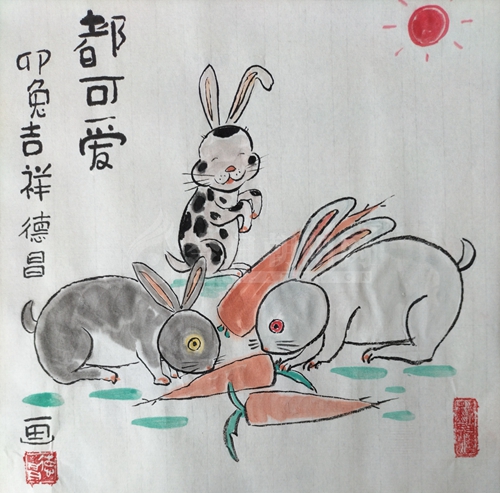 都可爱
卯兔吉祥德昌
画